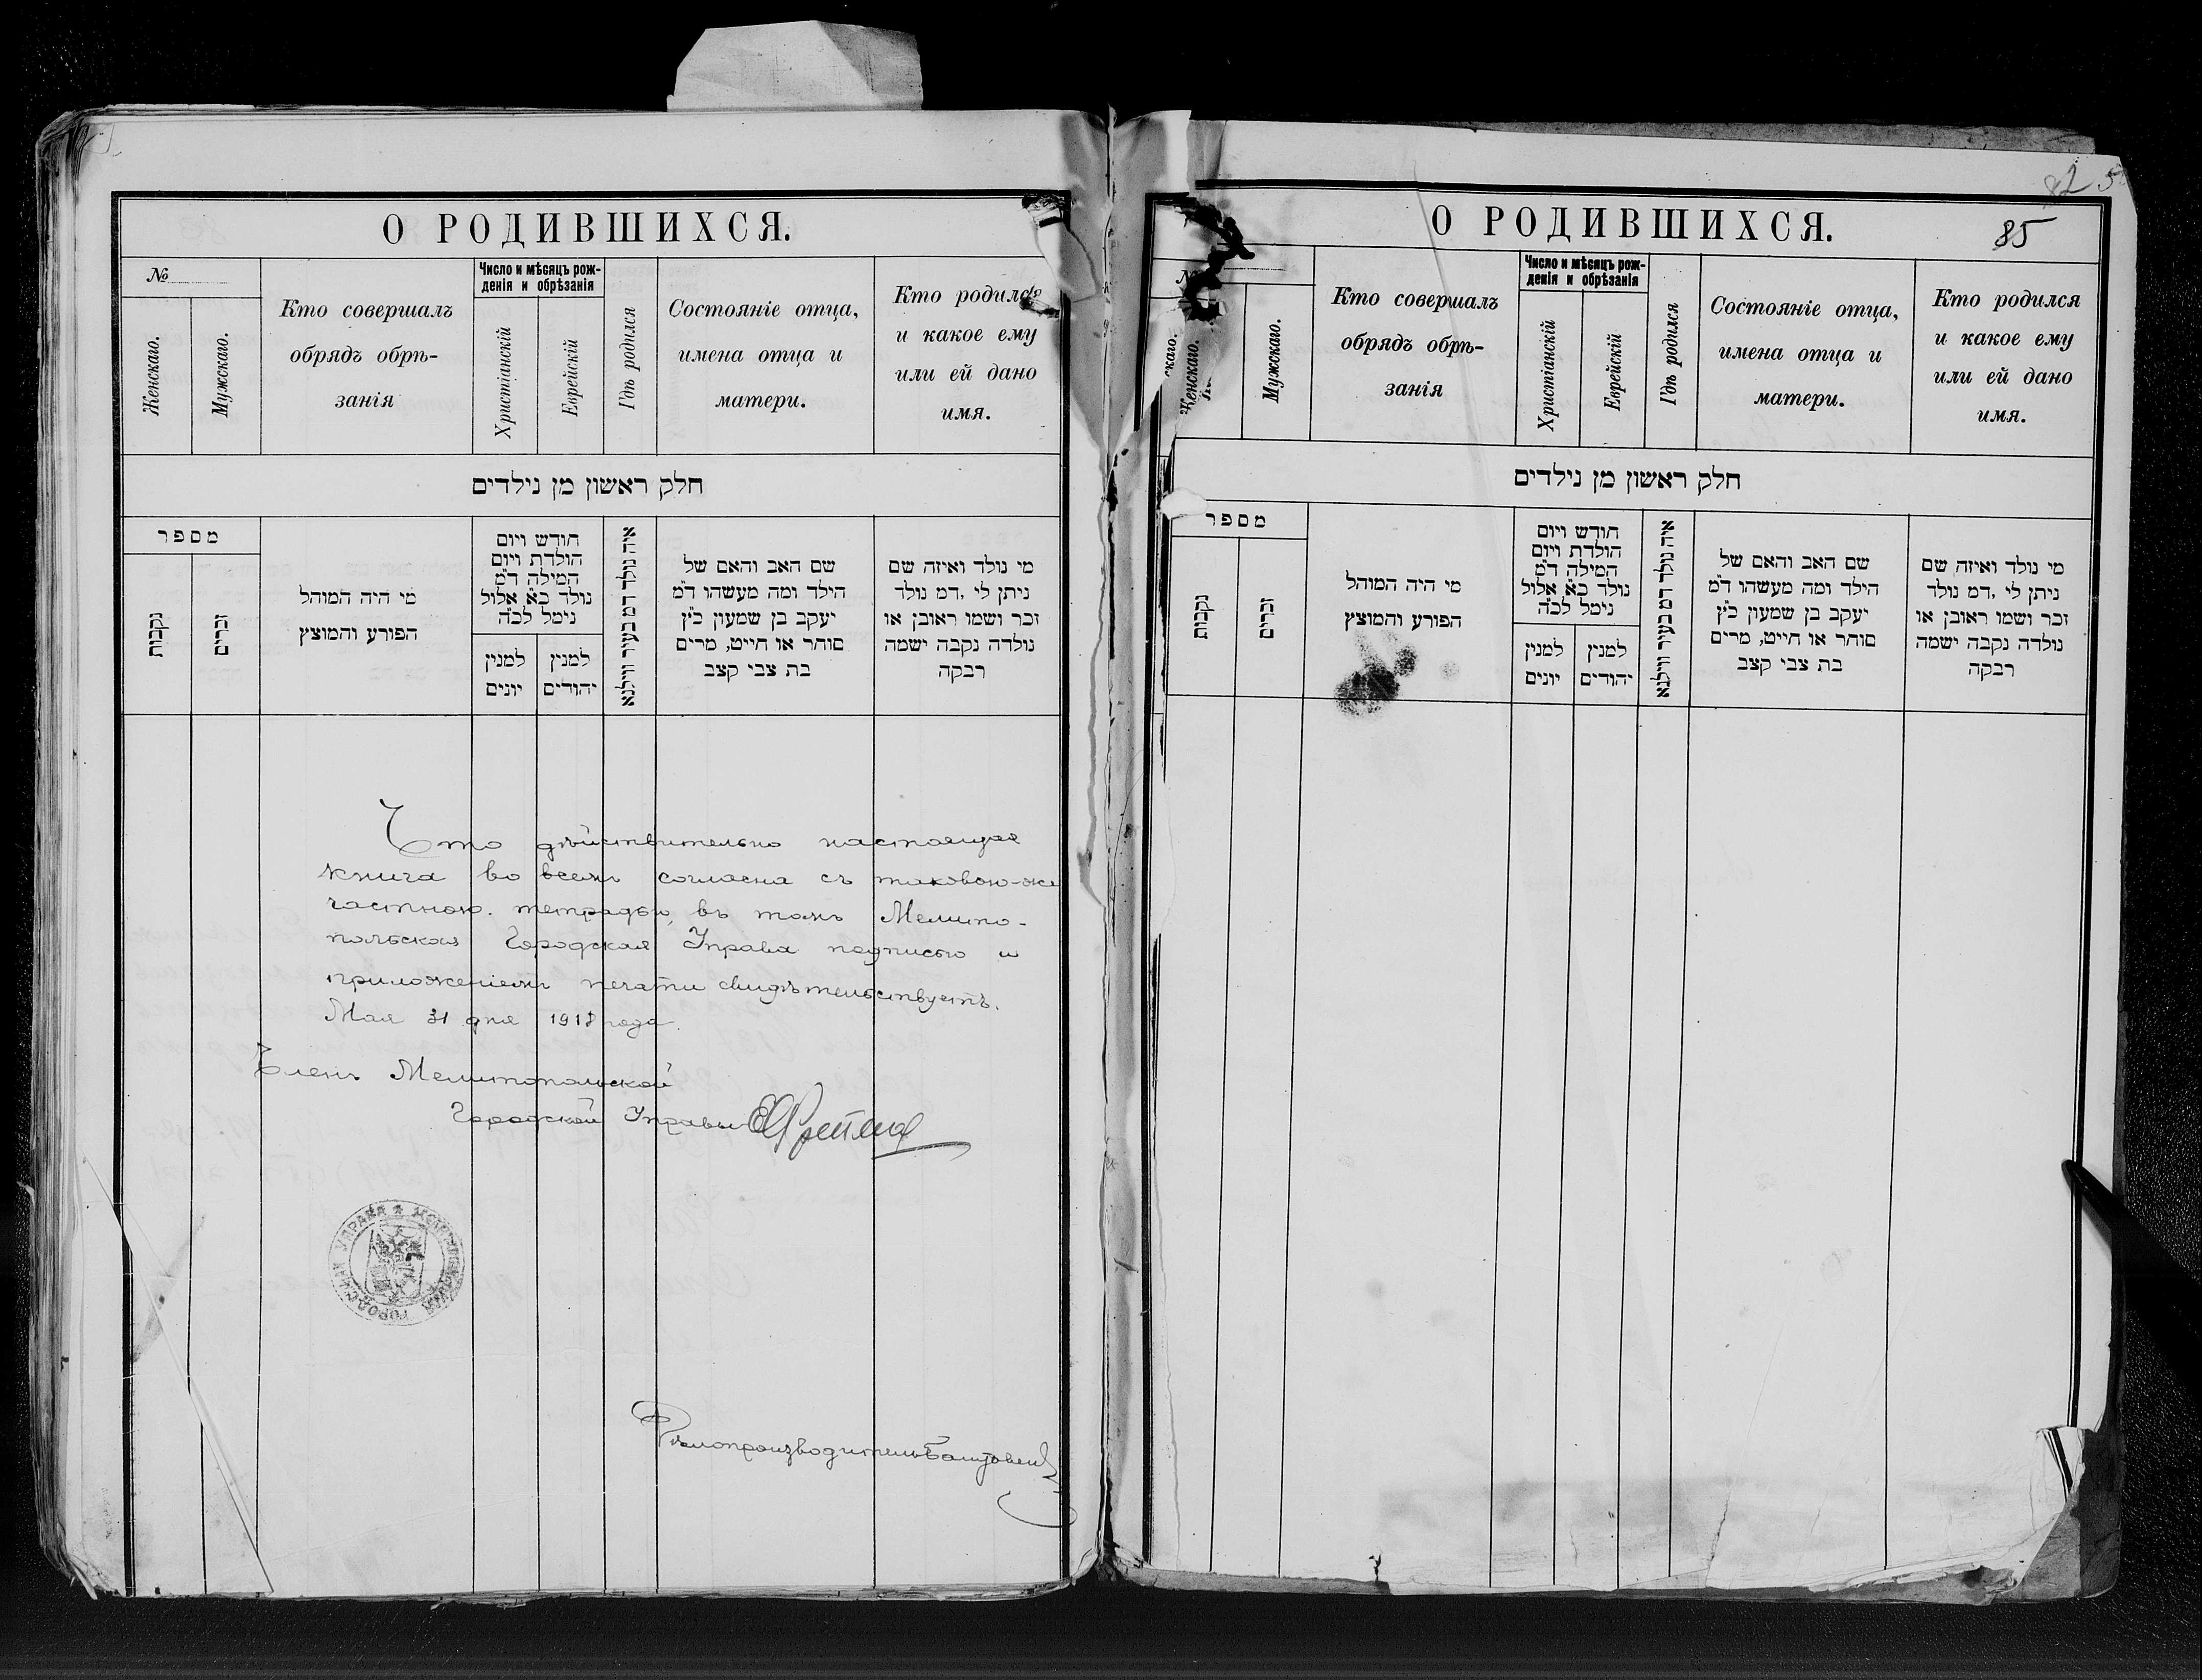 О РОДИВШИХСЯ.
№
Женскаго.
Мужскаго.
Кто совершалъ
обрядъ обрѣ-
занія
Число и мѣсяцъ рож-
денія и обрѣзанія
Христіанскій
Еврейскій
Гдѣ родился
Состояніе отца,
имена отца и
матери.
Кто родился
и какое ему
или ей дано
имя.
חלק ראשון מן נילדים
מספר
נקבות
זכרים
מי היה המוהל
הפורע והמוצץ
חודש ויום
הולדת ויום
המילה ד״מ
נולד כ״א אלול
נימל לכ״ה
למנין
יונים
למנין
יהודים
איה נולד דמ בעיר ווילנא
שם האב והאם של
הילד ומה מעשהו ד״מ
יעקב בן שמעון כ״ץ
סוחר או חייט, מרים
בת צבי קצב
מי נולד ואיזה שם
ניתן לי ,דמ נולד
זכר ושמו ראובן או
נולדה נקבה ישמה
רבקה
Что дѣйствительно настоящая
книга во всемъ согласна съ таковою-же
частною тетрадью, въ томъ Мелито-
польская Городская Управа подписью и
приложеніемъ печати свидѣтельствуетъ.
Мая 31 дня 1918 года.
Членъ Мелитопольской
Городской Управы
ГОРОДСКАЯ УПРАВА ★ МЕЛИТОПОЛЬСКАЯ
Дѣлопроизводитель
О РОДИВШИХСЯ.
85
№
Женскаго.
Мужскаго.
Кто совершалъ
обрядъ обрѣ-
занія
Число и мѣсяцъ рож-
денія и обрѣзанія
Христіанскій
Еврейскій
Гдѣ родился
Состояніе отца,
имена отца и
матери.
Кто родился
и какое ему
или ей дано
имя.
חלק ראשון מן נילדים
מספר
נקבות
זכרים
מי היה המוהל
הפורע והמוצץ
חודש ויום
הולדת ויום
המילה ד״מ
נולד כ״א אלול
נימל לכ״ה
למנין
יונים
למנין
יהודים
איה נולד דמ בעיר ווילנא
שם האב והאם של
הילד ומה מעשהו ד״מ
יעקב בן שמעון כ״ץ
סוחר או חייט, מרים
בת צבי קצב
מי נולד ואיזה שם
ניתן לי ,דמ נולד
זכר ושמו ראובן או
נולדה נקבה ישמה
רבקה